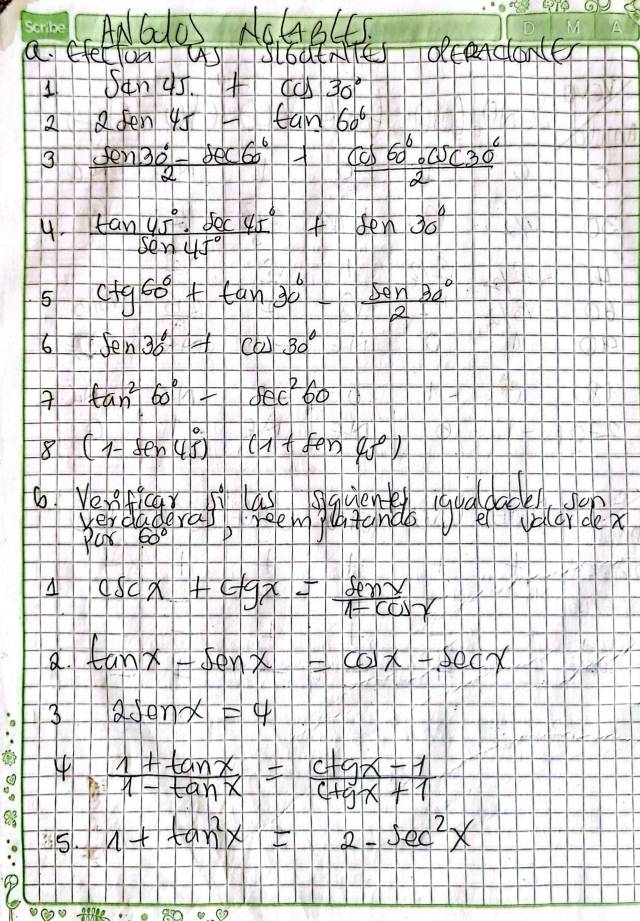 Scribe
D M A
ANGULOS NOTABLES.
a. Efectua LAS SIGUIENTES OPERACIONES
1 Sen 45. + cos 30°
2 2 Sen 45 - tan 60°
3 sen30° - sec60° / 2 + cos 60° . csc 30° / 2
4. tan 45° . sec 45° / sen 45° + sen 30°
5 ctg 60° + tan 30° - sen 30° / 2
6 Sen 30° + cos 30°
7 tan² 60° - sec² 60
8 (1 - sen 45°) (1 + sen 45°)
b. Verificar si las siguientes igualdades son
verdaderas, reemplazando y el valor de x
por 60°
1 cscx + ctgx = senx / 1 - cosx
2. tanx - senx = cosx - secx
3 2senx = 4
4 1 + tanx / 1 - tanx = ctgx - 1 / ctgx + 1
5. 1 + tan²x = 2 - sec²x